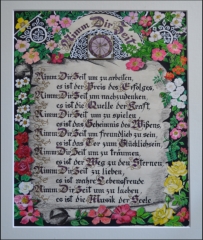 Nimm Dir Zeit
Nimm Dir Zeit um zu arbeiten,
es ist der Preis des Erfolges.
Nimm Dir Zeit um nachzudenken,
es ist die Quelle der Kraft.
Nimm Dir Zeit um zu spielen,
es ist das Geheimnis des
Nimm Dir Zeit um freundlich zu sein,
es ist das Tor zum Glücklichsein.
Nimm Dir Zeit um zu träumen,
es ist der Weg zu den Sternen.
Nimm Dir Zeit zu lieben,
es ist wahre Lebensfreude
Nimm Dir Zeit um zu lachen
es ist die Musik der Seele